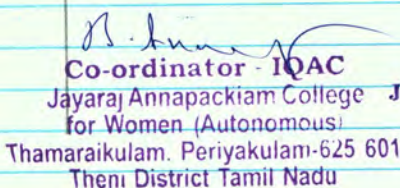 Co-ordinator - IQAC
Jayaraj Annapackiam College J
for Women (Autonomous)
Thamaraikulam. Periyakulam-625 601
Theni District Tamil Nadu